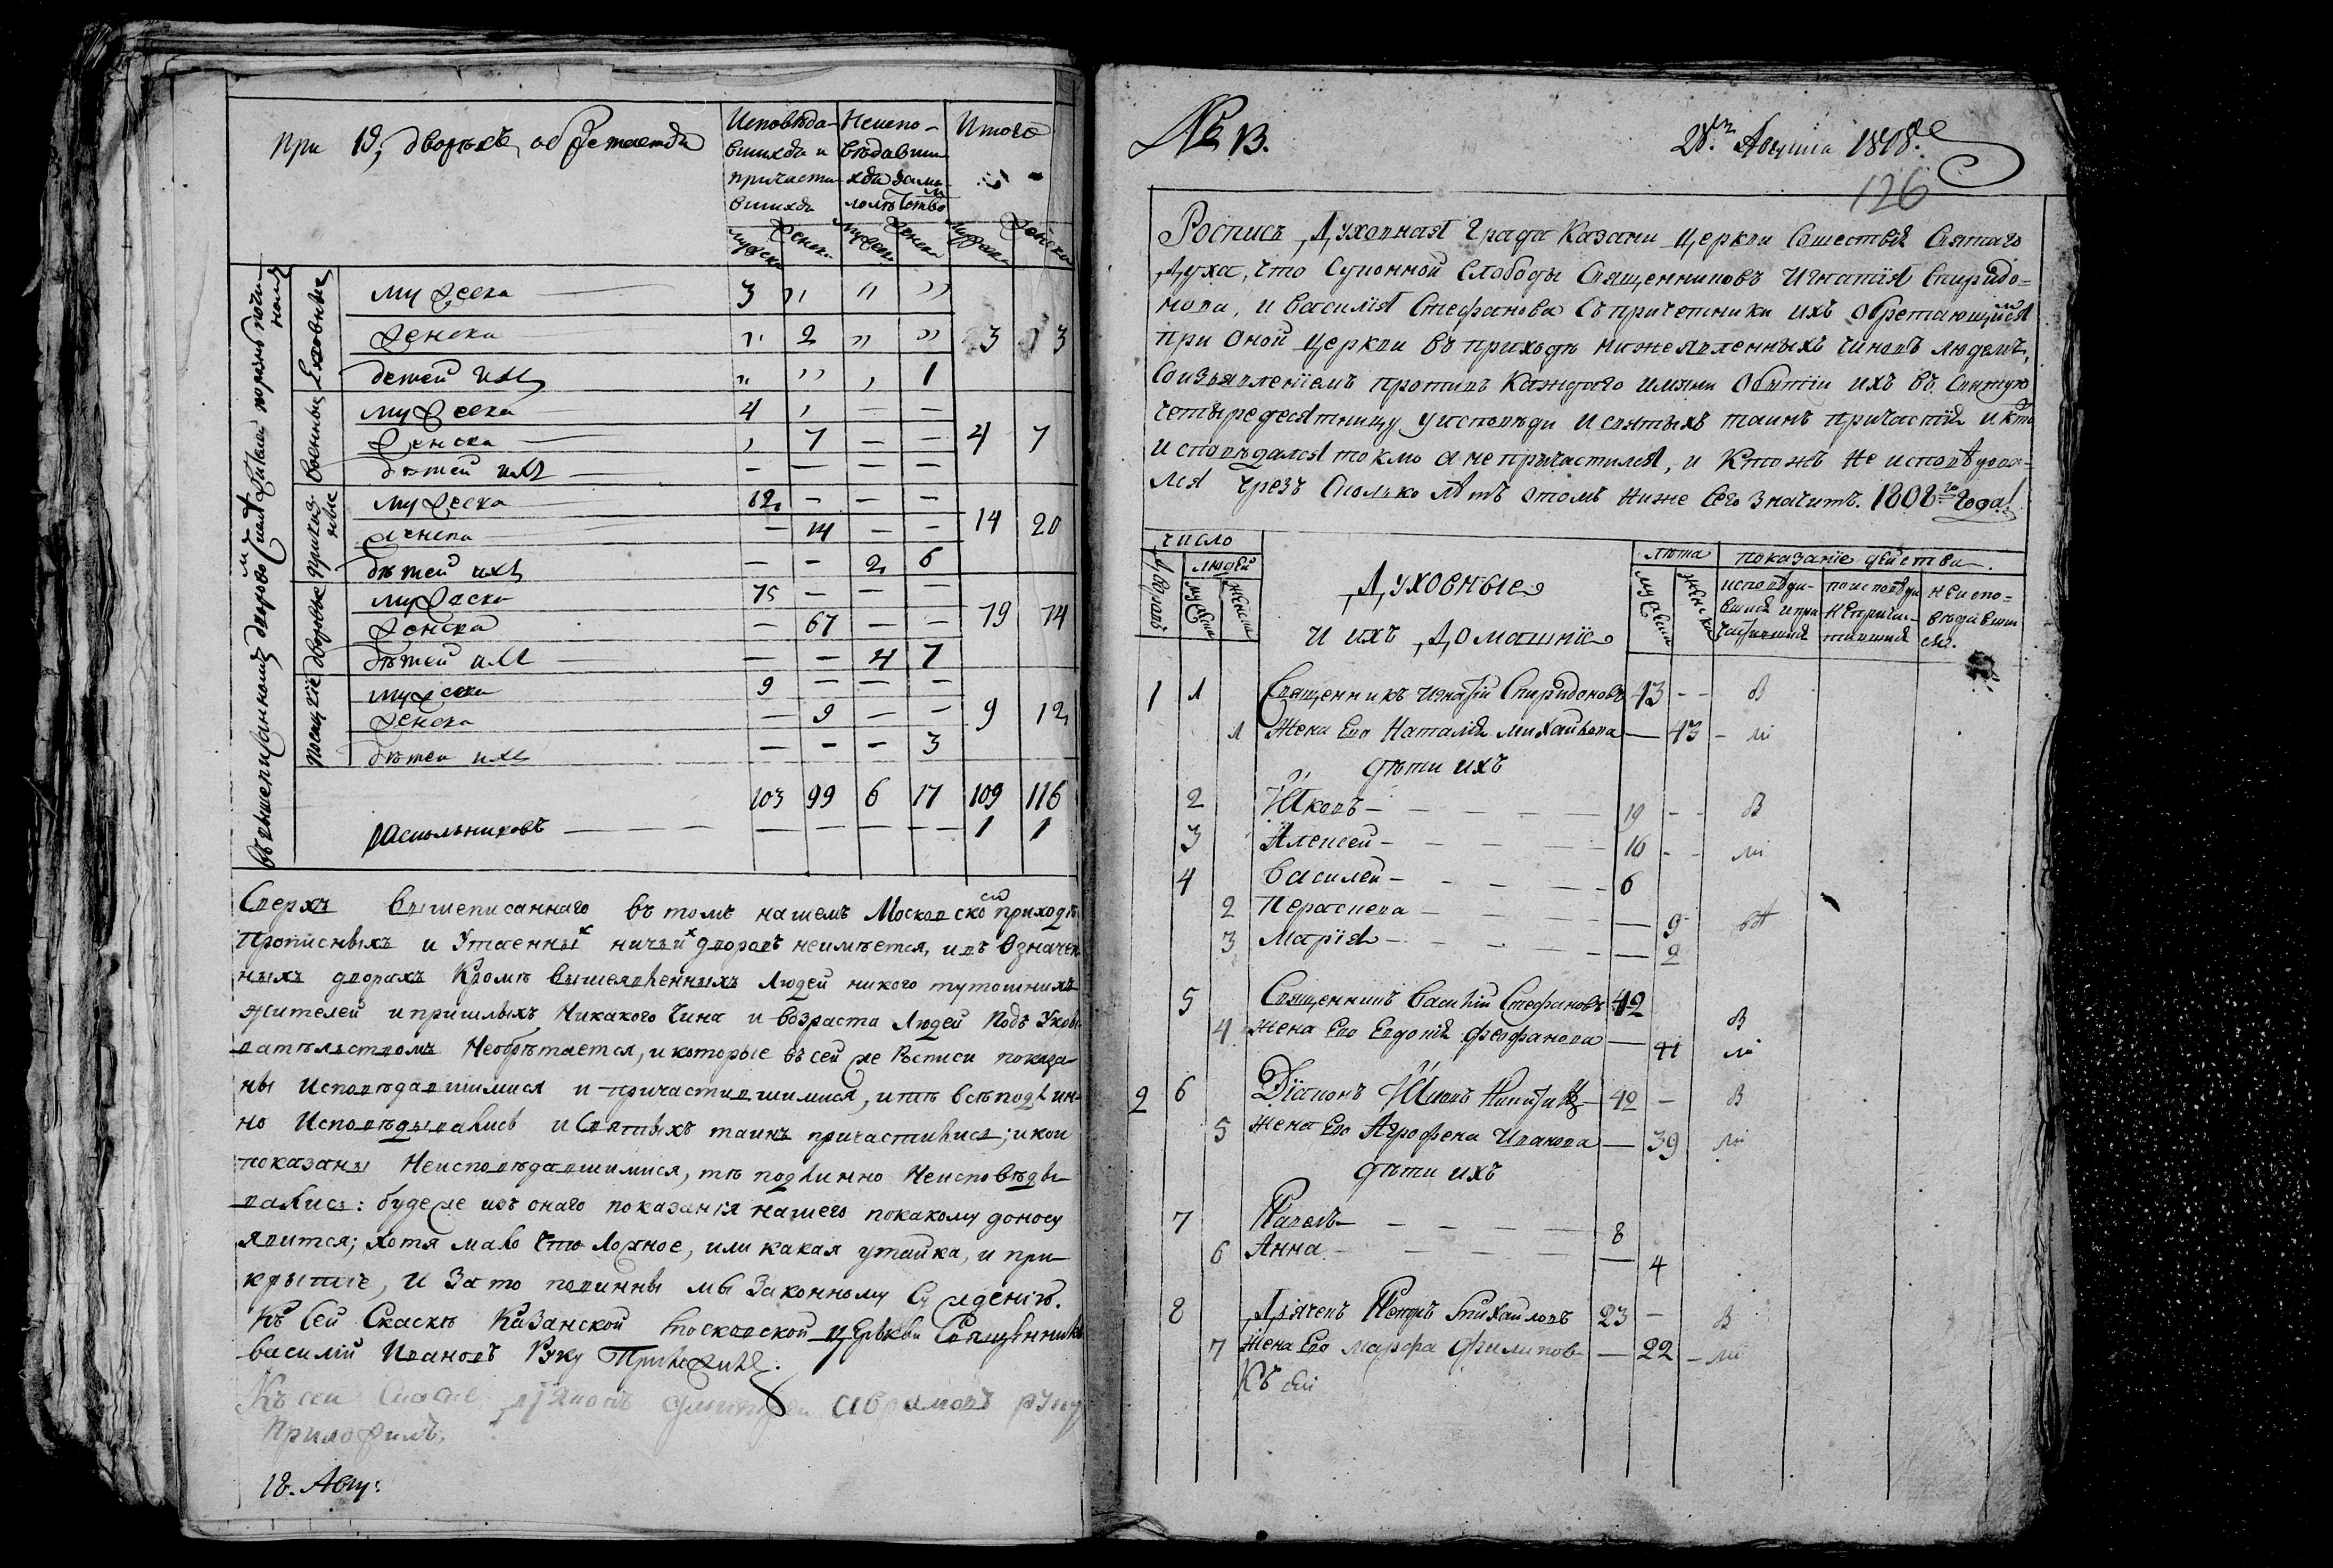 При 19, дворахъ, обретается
Исповѣда-
вшихся и
причасти-
вшихся
Неиспо-
вѣдавши
хся за ма-
лолѣтство
Итого
мужска
женск.
мужск.
женск.
мужска
женска
Въ вышеписанномъ
Духовные
мужеска — 3 ,, ,, ,,
женска ,, 2 ,, ,, 3 3
детей ихъ ,, ,, , 1
военныя
мужеска 4 , — —
женска , 7 — — 4 7
дѣтей ихъ — — — —
приказ-
ные
мужеска 12 — — —
женска — 14 — — 14 20
дѣтей ихъ — — 2 6
дворовые
мужеска 75 — — —
женска — 67 — — 79 74
дѣтей ихъ — — 4 7
посацкіе
мужеска 9 — — —
женска — 9 — — 9 12
дѣтей ихъ — — — 3
103 99 6 17 109 116
раскольниковъ — — — — — — — 1 1
Сверхъ вышеписаннаго въ томъ нашемъ Московской приходѣ
прописныхъ и утаенных ничьих дворовъ неимѣется, и въ означен
ныхъ дворахъ кромѣ вышеявленныхъ людей никого тутошнихъ
жителей и пришлыхъ никакого чина и возраста людей подъ укры
вательствомъ необрѣтается, и которые въ сей же росписи показа-
ны исповѣдавшимися и причастившимися, и тѣ всѣ подлин-
но исповѣдывались и святыхъ таинъ причастились; и кои
показаны неисповѣдавшимися, тѣ подлинно неисповѣды-
вались: буде же изъ онаго показанія нашего по какому доносу
явится; хотя мало что ложное, или какая утайка, и при-
крытіе, и за то повинны мы законному сужденію.
Къ сей скаскѣ Казанской Московской церькви священникъ
василій Ивановъ Руку Приложилъ.
Къ сей скаске, діяконъ Аврамовъ руку
приложилъ.
18. Авгу:
№ 13.
28го Августа 1808го
126
Роспись Духовная града Казани церкви Сошествія Святаго
Духа, что Суконной Слободы Священниковъ Игнатія Спиридо=
нова, и Василія Стефанова съ причетники ихъ обретающимся
при оной церкви въ приходѣ нижеявленныхъ чиновъ людемъ,
соизъявленіемъ противъ каждаго имяни о бытіи ихъ въ Святую
четыредесятницу у исповѣди и святыхъ таинъ причастія и кто
исповѣдался токмо а не причастился, и ктожъ не исповѣдова-
лся чрезъ сколько лѣтъ о томъ ниже сего значитъ. 1808го года.
число
дворовъ
людей
мужска
женска
Духовныя
и ихъ Домашніе
лѣта
мужска
женска
показаніе дѣйства.
исповѣда-
вшися и при
частившися
по исповѣди
непричас-
тившися
неиспо=
вѣдавши
ся.
1 1 Священникъ Игнатій Спиридоновъ 43 — — В
1 Жена Его Наталія Михайлова — 43 — ли
дѣти ихъ
2 Іяковъ — — — — 19 — — В
3 Алексей — — — — 16 — — ли
4 Василей — — — — 6
2 Пераскева — — — — 9 ва
3 Марія — — — — 2
5 Священникъ Василій Стефановъ 42 В
4 жена Его Евдокія Феофанова — 41 ли
2 6 Діаконъ 42 — В
5 жена Его Агрофена Иванова — 39 ли
дѣти ихъ
7 Павелъ — — — — 8
6 Анна — — — — 4
8 Дьячекъ Петръ Михайловъ 23 — В
7 жена Его Марфа Филипов — 22 — ли
Къ сей